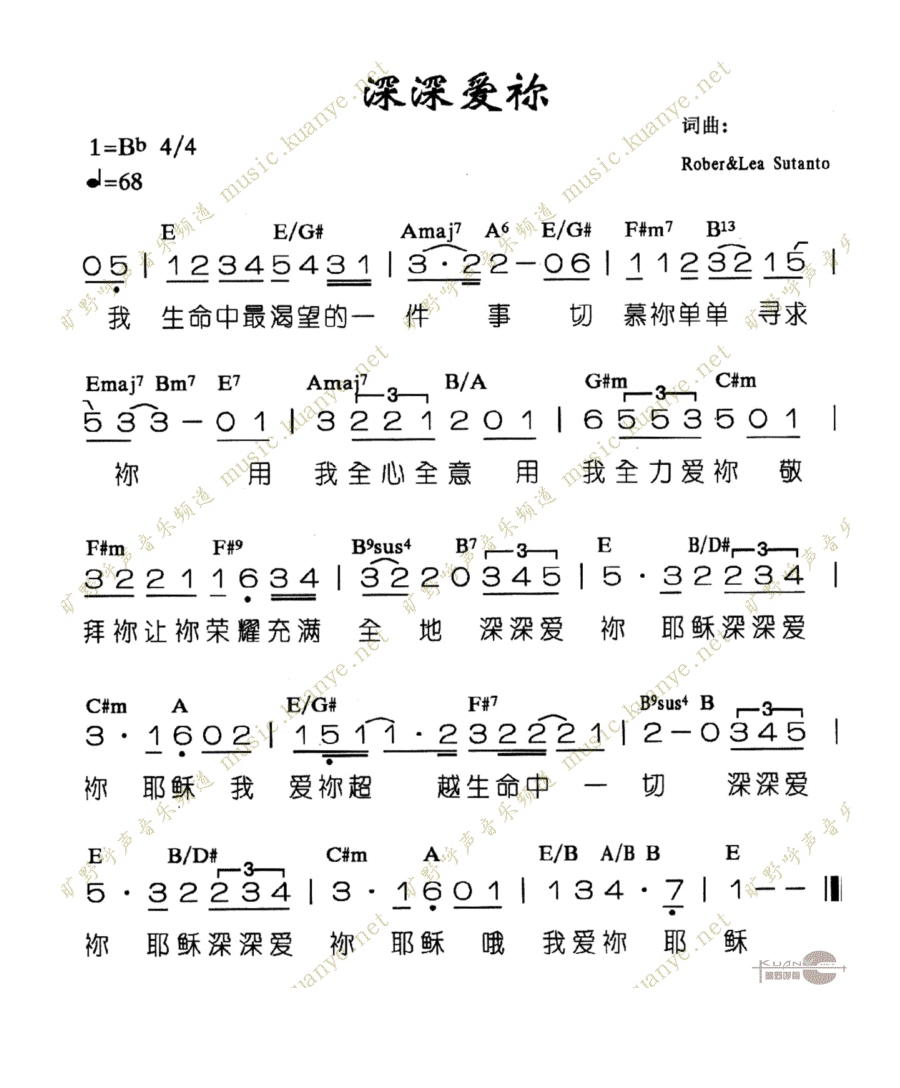 深深爱祢
词曲：
1=Bb 4/4
Rober&Lea Sutanto
♩=68
E E/G# Amaj7 A6 E/G# F#m7 B13
05 | 12345431 | 3·22-06 | 1123215
我 生命中最渴望的一 件 事 切 慕祢单单 寻求
Emaj7 Bm7 E7 Amaj7 3 B/A G#m 3 C#m
533-01 | 3221201 | 6553501 |
祢 用 我全心全意 用 我全力爱祢 敬
F#m F#9 B9sus4 B7 3 E B/D# 3
32211634 | 3220345 | 5·32234 |
拜祢让祢荣耀充满 全 地 深深爱 祢 耶稣深深爱
C#m A E/G# F#7 B9sus4 B 3
3·1602 | 1511·232221 | 2-0345 |
祢 耶稣 我 爱祢超 越生命中 一 切 深深爱
E B/D# 3 C#m A E/B A/B B E
5·32234 | 3·1601 | 134·7 | 1--
祢 耶稣深深爱 祢 耶稣 哦 我爱祢 耶 稣
旷野呼声音乐频道 music.kuanye.net
KUANYE.NET
旷野呼声